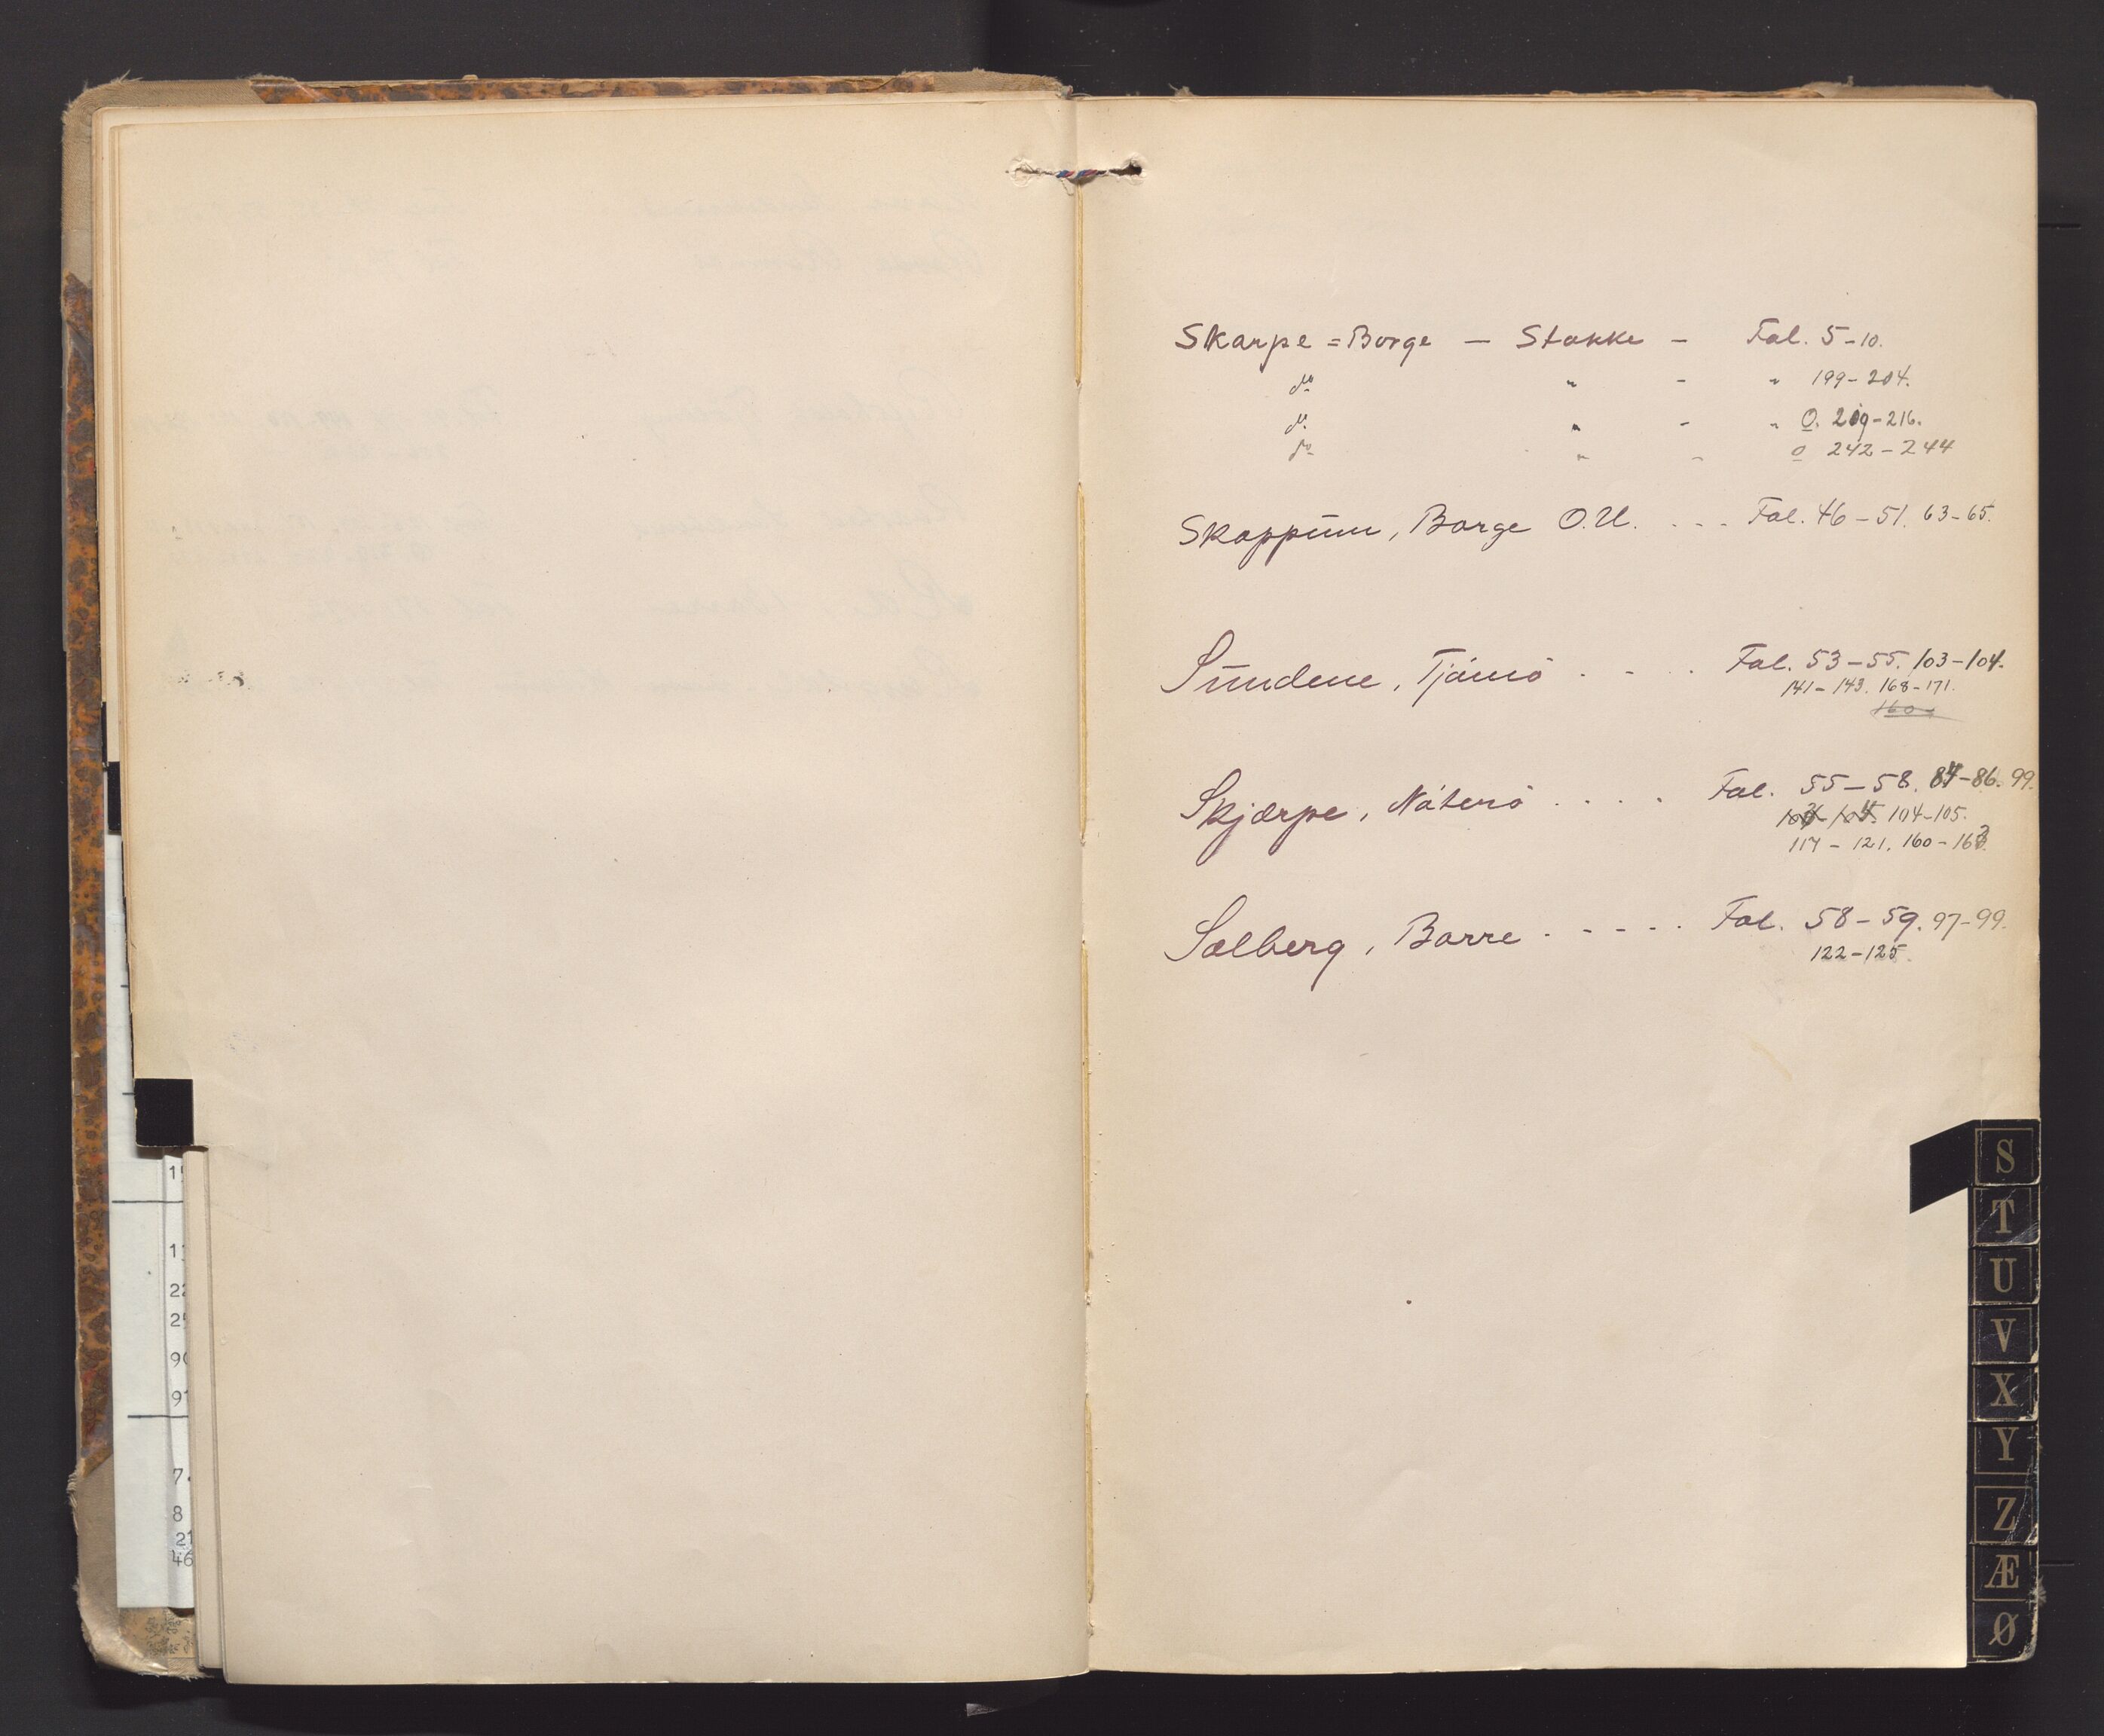 Skarpe = Borge — Stokke – Fol. 5–10.
do " – " 199–204.
do " – " O. 209–216.
do " – O 242–244
Skoppum, Borge O.U. . . . . Fol. 46–51. 63–65.
Sundene, Tjömö . - . . Fol. 53–55. 103–104.
141–143. 168–171.
160
Skjærpe, Nöterö . . . . Fol. 55–58. 84–86. 99.
104–105.
117–121. 160–163.
Solberg, Borre . - - - . . Fol. 58–59. 97–99.
122–125.
S
T
U
V
X
Y
Z
Æ
Ø
22
7
8
46